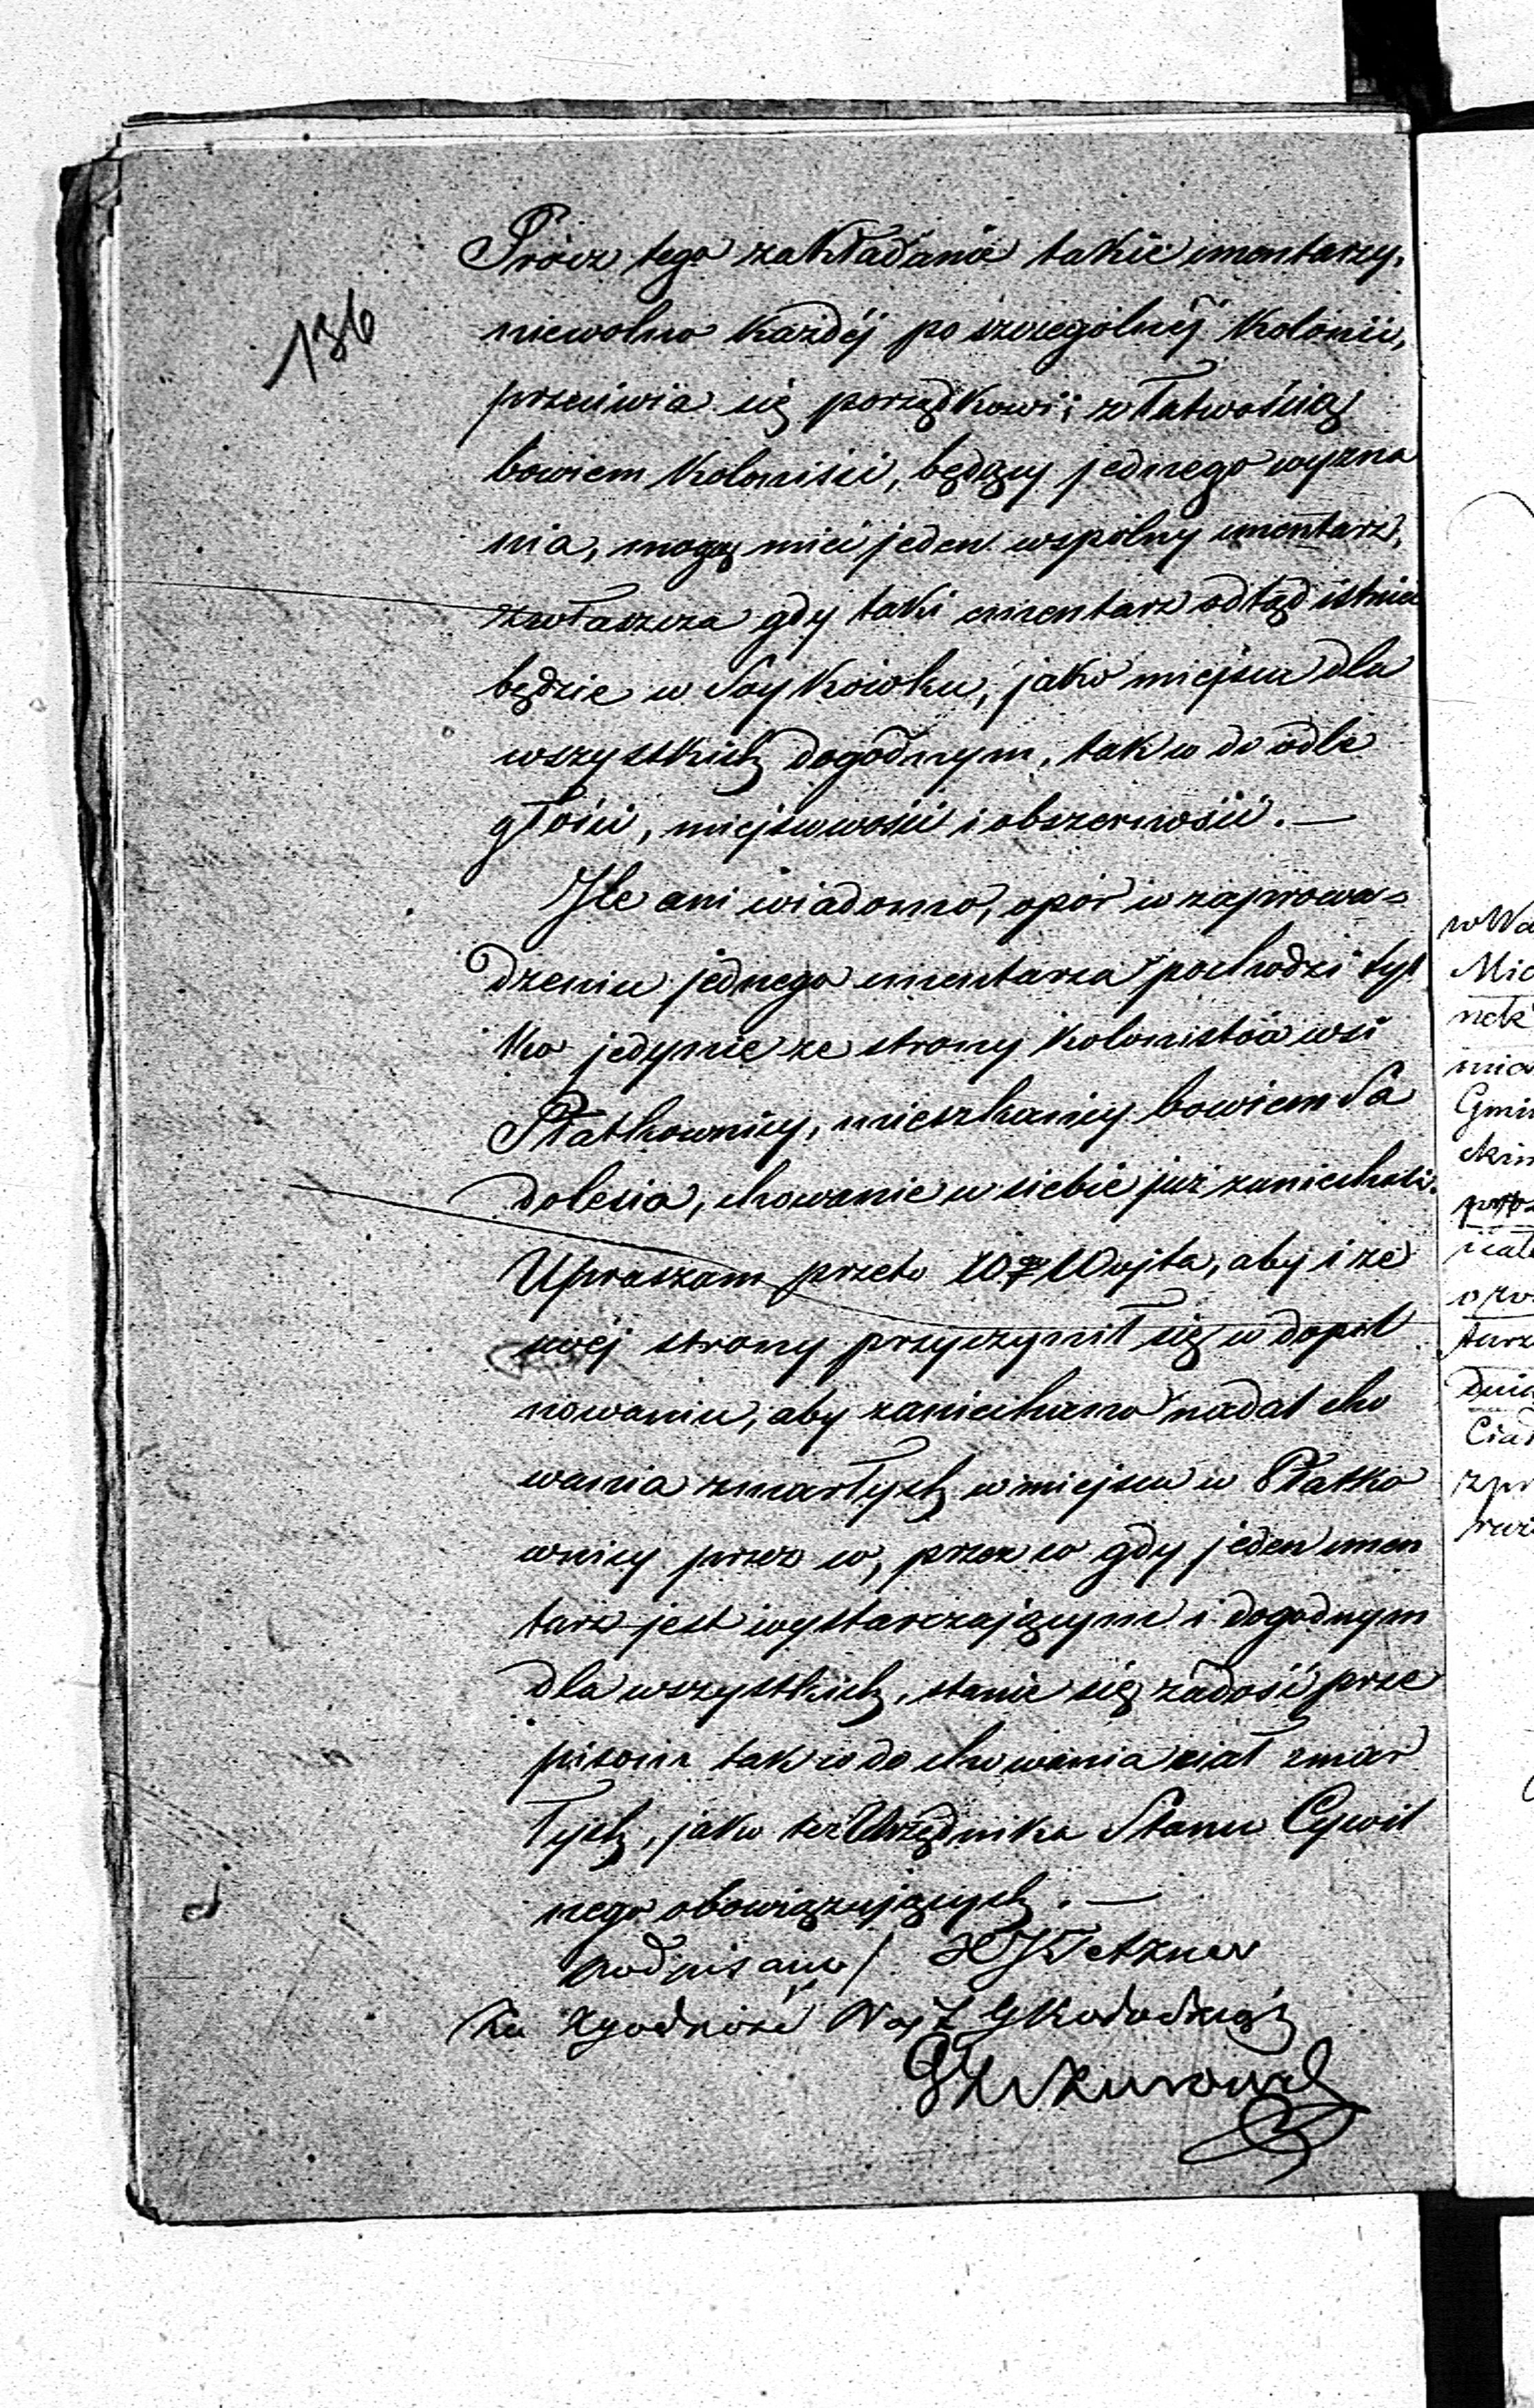 136
Prócz tego zakładanie takie cmentarzy,
niewolno każdéj po szczególnéj Kolonii,
przeciwia się porządkowi; z łatwością
bowiem Koloniści, będący jednego wyzna
nia, mogą mieć jeden wspólny cmentarz,
zwłaszcza gdy taki cmentarz odtąd istnieć
będzie w Soykówku, jako miejscu dla
wszystkich dogodnym, tak co do odle
głości, miejscowości i obszerności. —
Ile mi wiadomo, opór w zaprowa=
dzeniu jednego cmentarza pochodzi tyl
ko jedynie ze strony kolonistów wsi
Płatkownicy, mieszkańcy bowiem Sa
dolesia, chowanie u siebie już zaniechali.
Upraszam przeto Wgo Wójta, aby i ze
swéj strony przyczynił się w dopil
nowaniu, aby zaniechano nadal cho
wania zmarłych w miejscu w Płatko
wnicy przez co, przez co gdy jeden cmen
tarz jest wystarczającym i dogodnym
dla wszystkich, stanie się zadość prze
pisom tak co do chowania ciał zmar
łych, jako też Urzędnika Stanu Cywil
nego obowiązujących. —
podpisano /
Za Zgodność Wójt G
w Wa
Mia
nek
Gmin
skim
Ciad